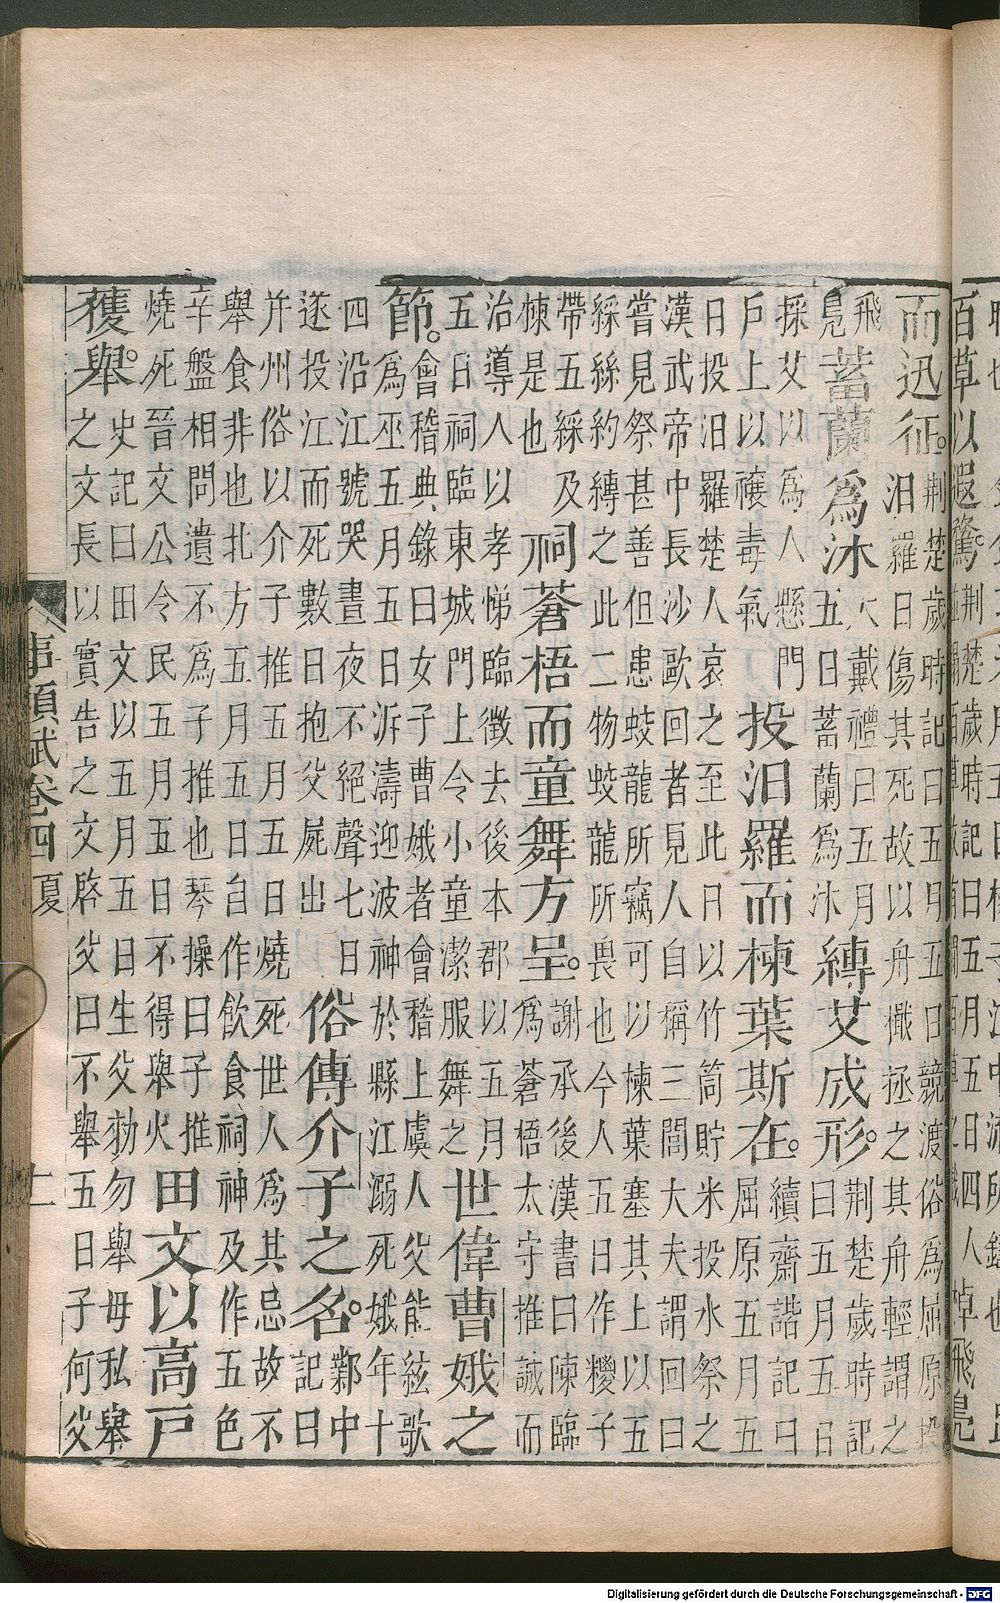 百草以遐騖。
荆楚歲時記曰五月五日四人
而迅征。
荆楚歲時記曰五月五日競渡俗爲屈原投
汨羅日傷其死故以舟檝拯之其舟輕謂之
飛
鳬
蓄蘭爲沐
大戴禮曰五月
五日蓄蘭爲沐
縳艾成形。
荆楚歲時記
曰五月五日
採艾以爲人懸門
戶上以禳毒氣
投汨羅而楝葉斯在。
續齋諧記曰
屈原五月五
日投汨羅楚人哀之至此日以竹筒貯米投水祭之
漢武帝中長沙歐回者見人自稱三閭大夫謂回曰
嘗見祭甚善但患蛟龍所竊可以楝葉塞其上以五
綵絲約縳之此二物蛟龍所畏也今人五日作糭子
帶五綵及
楝是也
祠蒼梧而童舞方呈。
謝承後漢書曰陳臨
爲蒼梧太守推誠而
治導人以孝悌臨徵去後本郡以五月
五日祠臨東城門上令小童潔服舞之
世偉曹娥之
節。
會稽典錄曰女子曹娥者會稽上虞人父能絃歌
爲巫五月五日泝濤迎波神於縣江溺死娥年十
四沿江號哭晝夜不絕聲七日
遂投江而死數日抱父屍出
俗傳介子之名。
鄴中
記曰
并州俗以介子推五月五日燒死世人爲其忌故不
舉食非也北方五月五日自作飲食祠神及作五色
辛盤相問遺不爲子推也琴操曰子推
燒死晉文公令民五月五日不得舉火
田文以高戶
獲舉。
史記曰田文以五月五日生父勑勿舉母私舉
之文長以實告之文啓父曰不舉五日子何父
事類賦卷四 夏
Digitalisierung gefördert durch die Deutsche Forschungsgemeinschaft - DFG